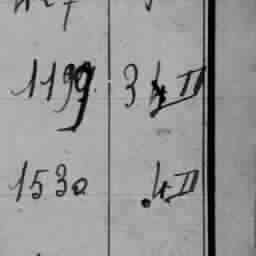 1199. 3 4 II
1530 .4 II